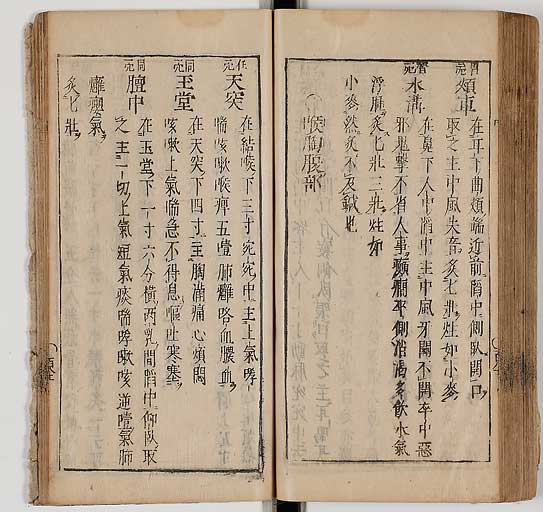 頰車
在耳下曲頰端近前陷中側臥開口
取之主中風失音灸七壯炷如小麥
水溝
在鼻下人中陷中主中風牙關不開卒中惡
邪鬼擊不省人事癲癇卒倒消渴多飲水氣
浮腫灸七壯三壯炷如
小麥然灸不及鍼也
喉胸腹部
天突
在結喉下三寸宛宛中主上氣哮
喘咳嗽喉痺五噎肺癰咯血膿血
玉堂
在天突下四寸主胸滿痛心煩悶
咳嗽上氣喘急不得息嘔吐寒痰
膻中
在玉堂下一寸六分橫兩乳間陷中仰臥取
之主一切上氣短氣痰喘哮嗽咳逆噎氣肺
癰瘿氣
灸七壯